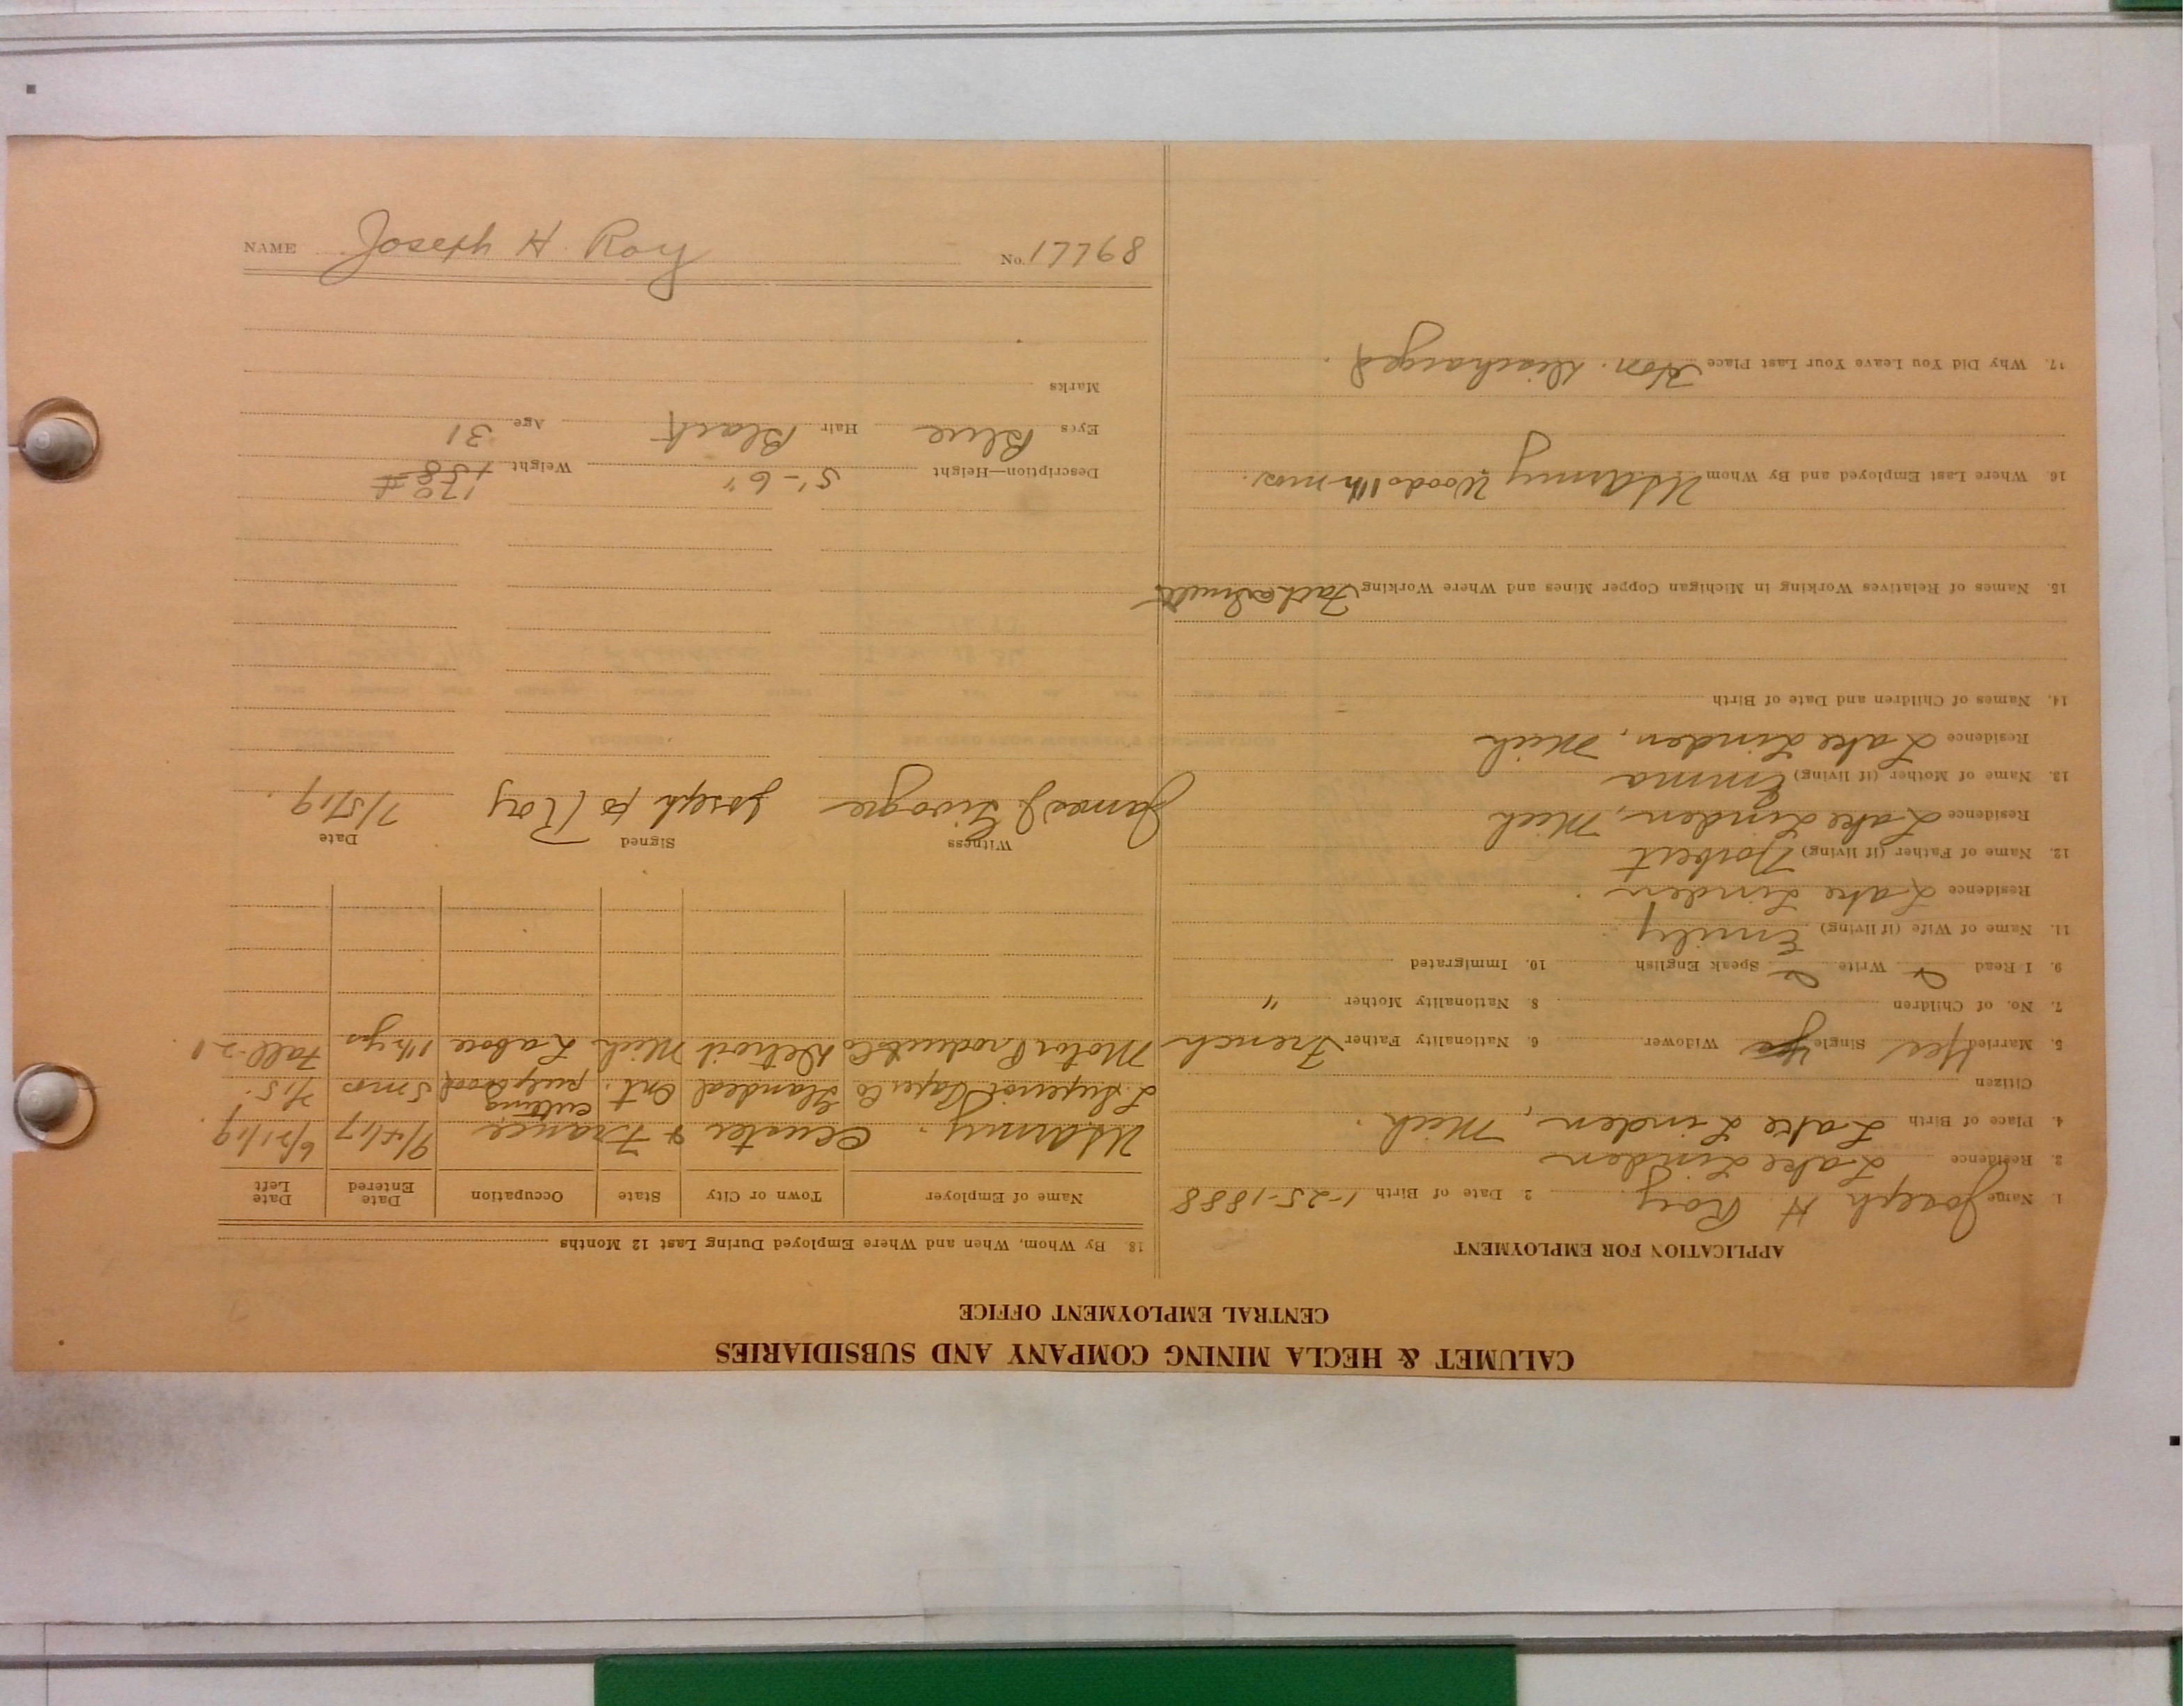 CALUMET & HECLA MINING COMPANY AND SUBSIDIARIES
CENTRAL EMPLOYMENT OFFICE
APPLICATION FOR EMPLOYMENT
1. Name Joseph H. Roy 2 Date of Birth 1-25-1888
3. Residence Lake Linden
4. Place of Birth Lake Linden, Mich.
Citizen
5. Married Yes Single Yes Widower 6. Nationality Father French
7. No. of Children 8. Nationality Mother "
9. I Read Write Speak English 10. Immigrated
11. Name of Wife (if living) Emily
Residence Lake Linden.
12. Name of Father (if living) Norbert
Residence Lake Linden, Mich
13. Name of Mother (if living) Emma
Residence Lake Linden, Mich
14. Names of Children and Date of Birth
15. Names of Relatives Working in Michigan Copper Mines and Where Working Father
16. Where Last Employed and By Whom US Army Woods mos.
17. Why Did You Leave Your Last Place Hon. Discharged.
18. By Whom, When and Where Employed During Last 12 Months
Name of Employer Town or City State Occupation Date Entered Date Left
US Army. Custer & France 9/4/17 6/21/19.
L. Superior Paper Co Ont. cutting pulpwood 5 mos 7/15.
Motor Products Co Detroit Mich Labor yrs Fall-21
Witness Signed Date
James J. Joseph H Roy 7/5/19.
Description—Height 5'-6" Weight 158 # 170
Eyes Blue Hair Black Age 31
Marks
NAME Joseph H. Roy No. 17768